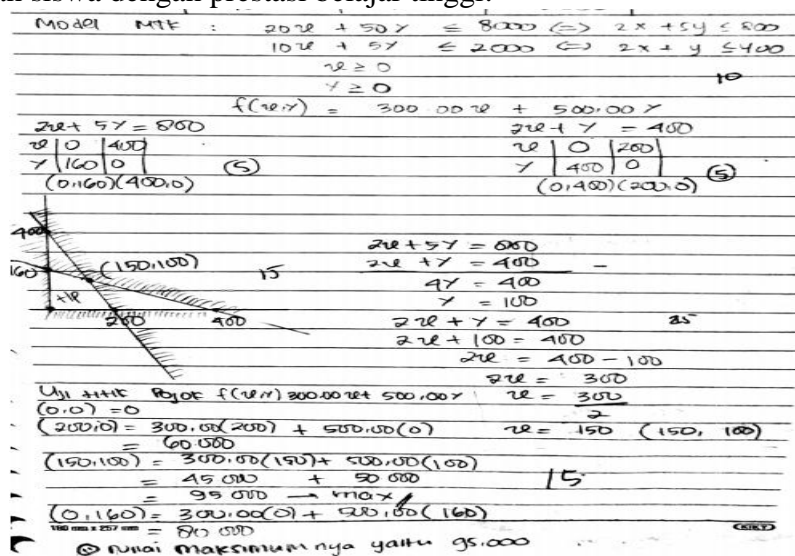 siswa dengan prestasi belajar tinggi.
Model MTK : 20x + 50y ≤ 8000 <=> 2x + 5y ≤ 800
10x + 5y ≤ 2000 <=> 2x + y ≤ 400
x ≥ 0
y ≥ 0
10
f(x,y) = 300.00x + 500.00y
2x + 5y = 800
x | 0 | 400
y | 160 | 0
(0,160)(400,0)
5
2x + y = 400
x | 0 | 200
y | 400 | 0
(0,400)(200,0)
5
400
160
(150,100)
200
400
15
2x + 5y = 800
2x + y = 400 -
4y = 400
y = 100
2x + y = 400
2x + 100 = 400
2x = 400 - 100
2x = 300
x = 300/2
x = 150 (150, 100)
Uji titik Pojok f(x,y) 300.00x + 500.00y
(0,0) = 0
(200,0) = 300.00(200) + 500.00(0)
= 60.000
(150,100) = 300.00(150) + 500.00(100)
= 45 000 + 50 000
= 95 000 → max
15
(0,160) = 300.00(0) + 500.00(160)
= 80 000
180 mm x 257 mm
KIKY
nilai maksimumnya yaitu 95.000